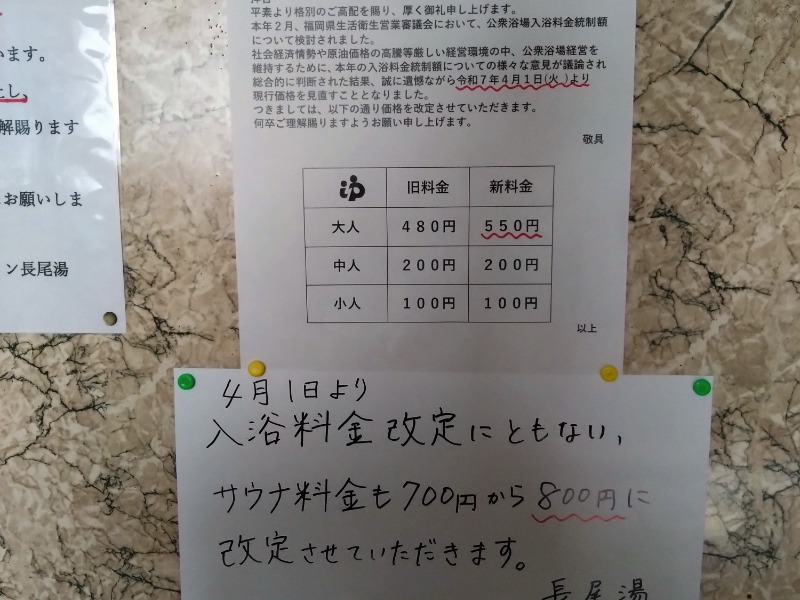 います。
とし、
解賜ります
お願いしま
ン長尾湯
平素より格別のご高配を賜り、厚く御礼申し上げます。
本年２月、福岡県生活衛生営業審議会において、公衆浴場入浴料金統制額
について検討されました。
社会経済情勢や原油価格の高騰等厳しい経営環境の中、公衆浴場経営を
維持するために、本年の入浴料金統制額についての様々な意見が議論され
総合的に判断された結果、誠に遺憾ながら令和７年４月１日(火)より
現行価格を見直すこととなりました。
つきましては、以下の通り価格を改定させていただきます。
何卒ご理解賜りますようお願い申し上げます。
敬具
ゆ 旧料金 新料金
大人 ４８０円 ５５０円
中人 ２００円 ２００円
小人 １００円 １００円
以上
4月1日より
入浴料金改定にともない、
サウナ料金も700円から800円に
改定させていただきます。
長尾湯